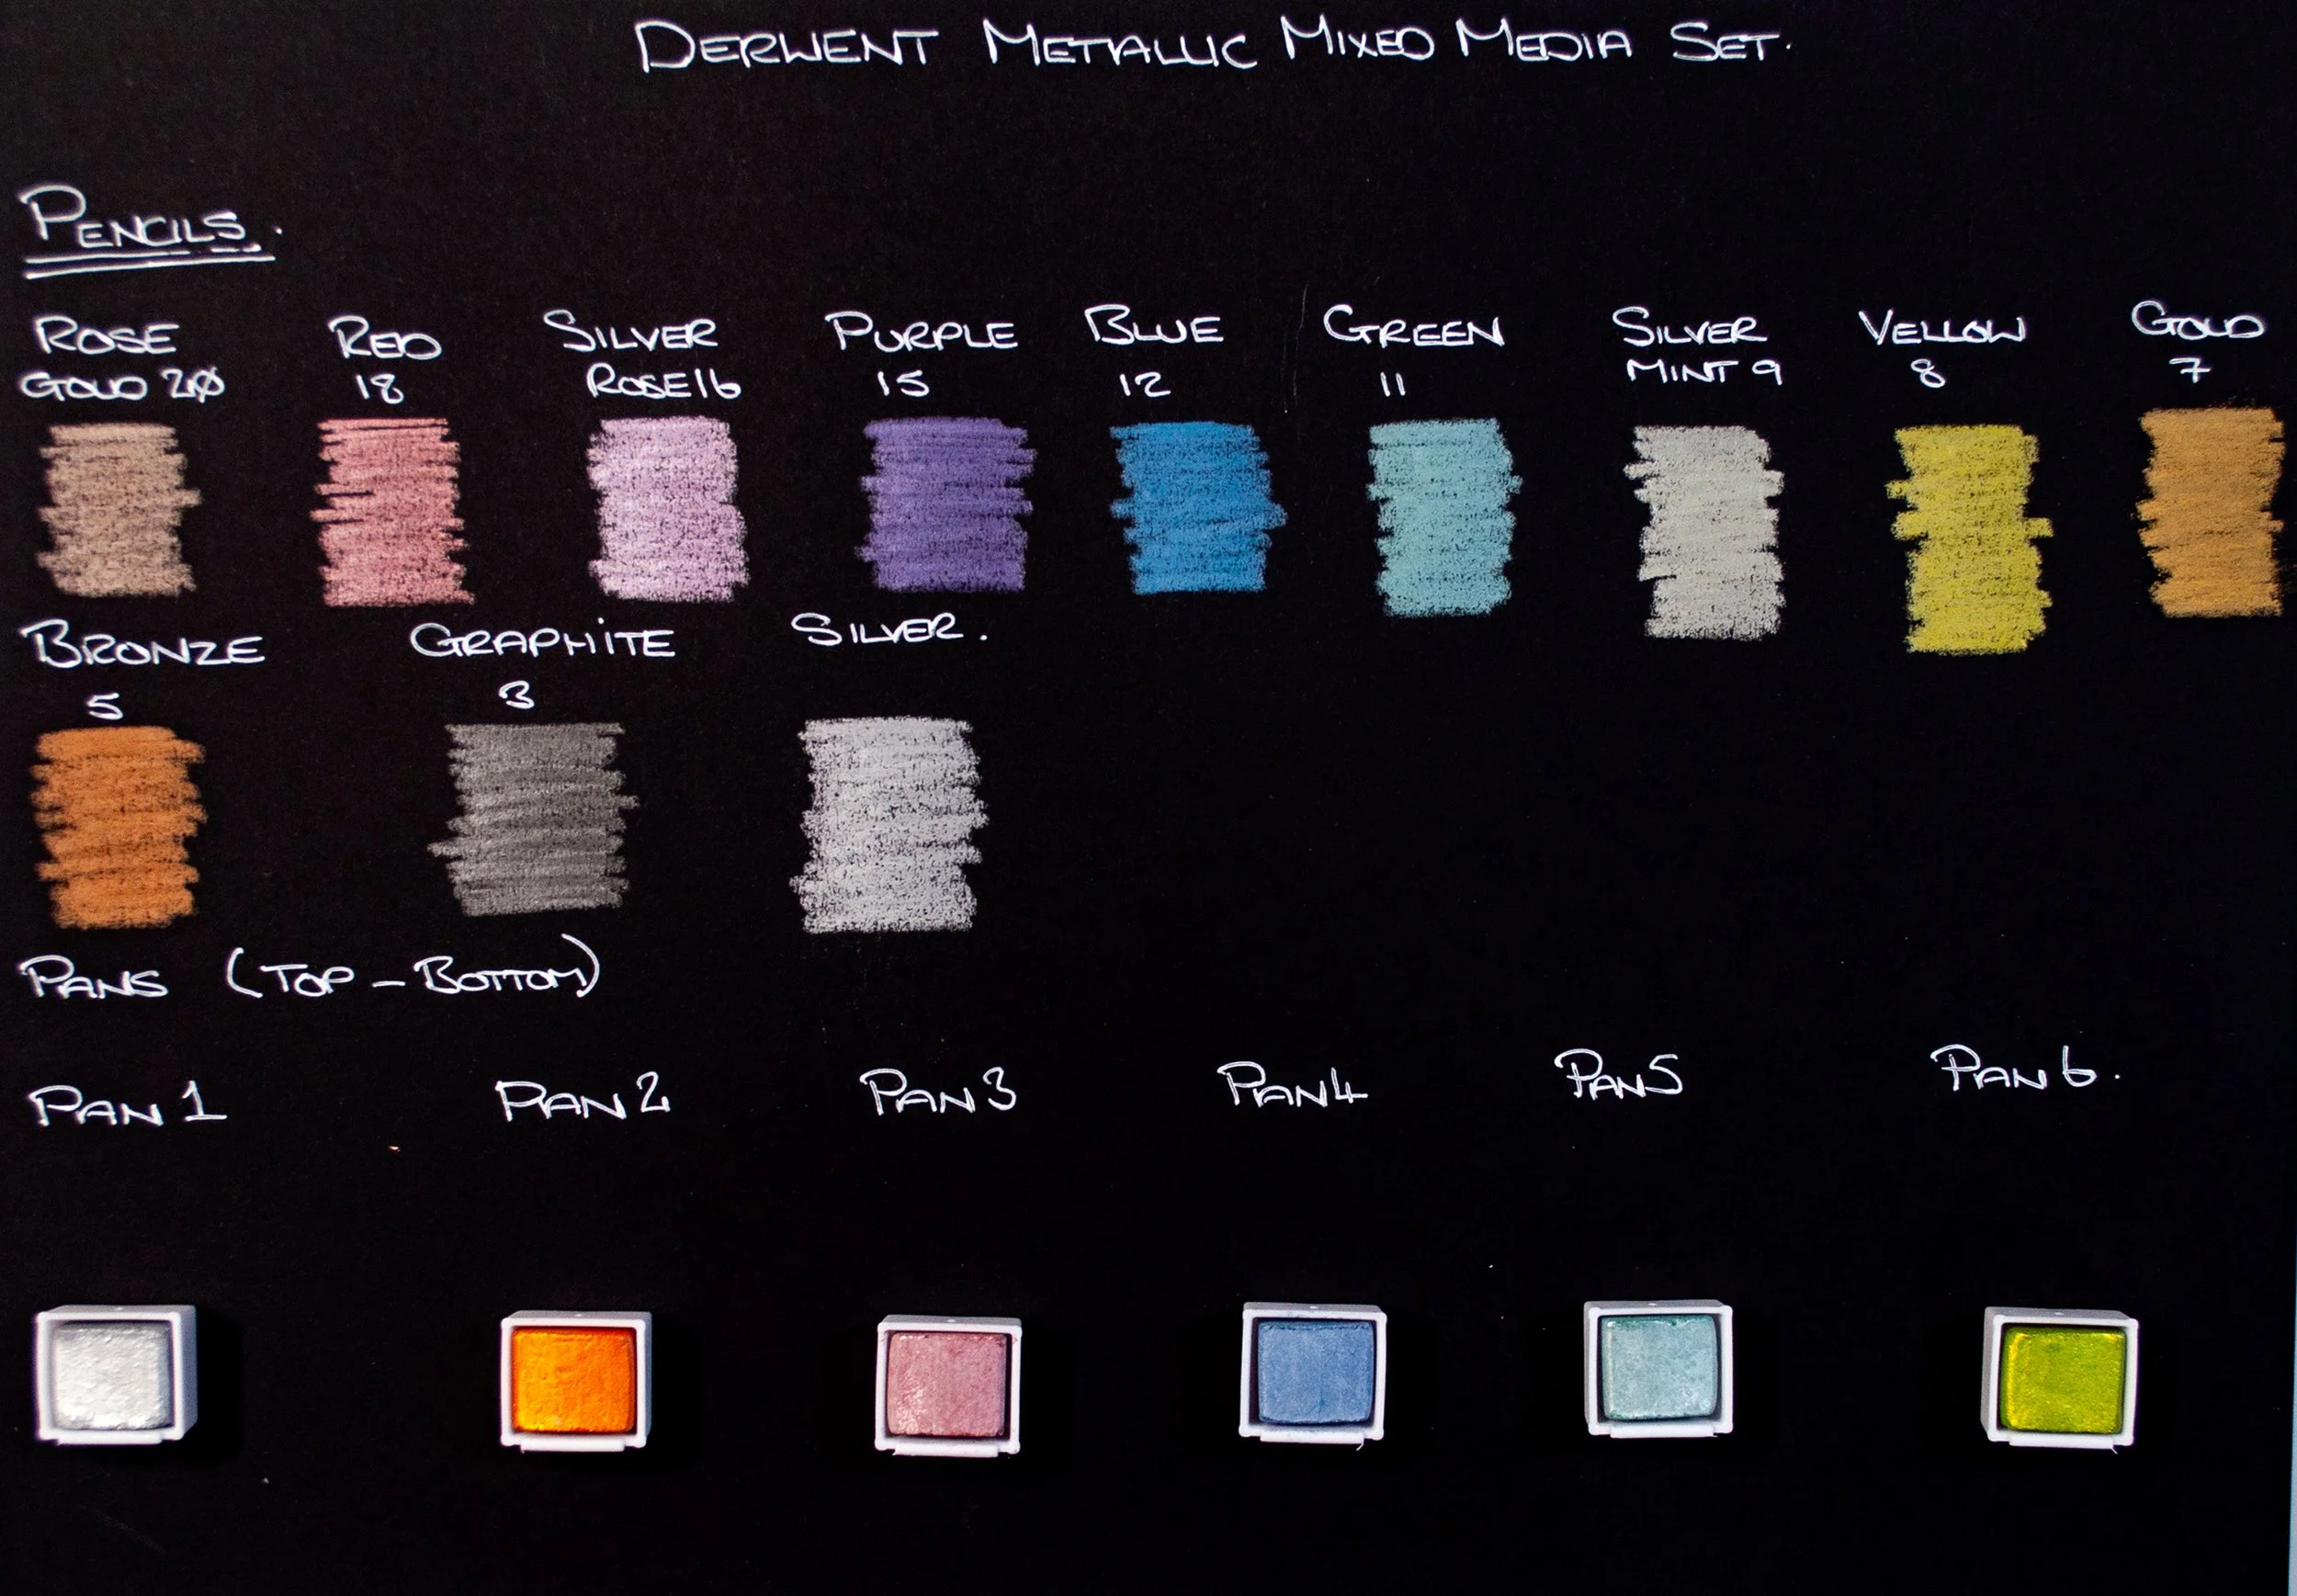 DERWENT METALLIC MIXED MEDIA SET.
PENCILS.
ROSE GOLD 20
RED 18
SILVER ROSE 16
PURPLE 15
BLUE 12
GREEN 11
SILVER MINT 9
YELLOW 8
GOLD 7
BRONZE 5
GRAPHITE 3
SILVER.
PANS (TOP - BOTTOM)
PAN 1
PAN 2
PAN 3
PAN 4
PAN 5
PAN 6.